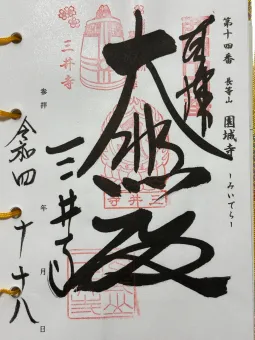 第十四番 長等山 園城寺 -みいでら-
奉拝
大悲殿
三井寺
三井寺
三井寺
参拝 令和四年 十月 十八日